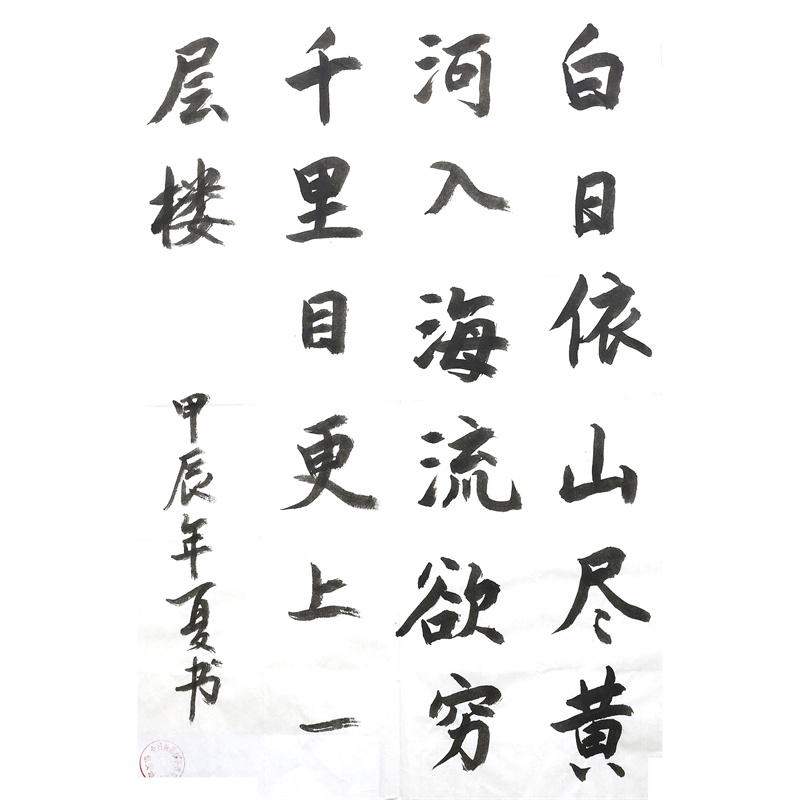 白日依山尽黄
河入海流欲穷
千里目更上一
层楼
甲辰年夏书